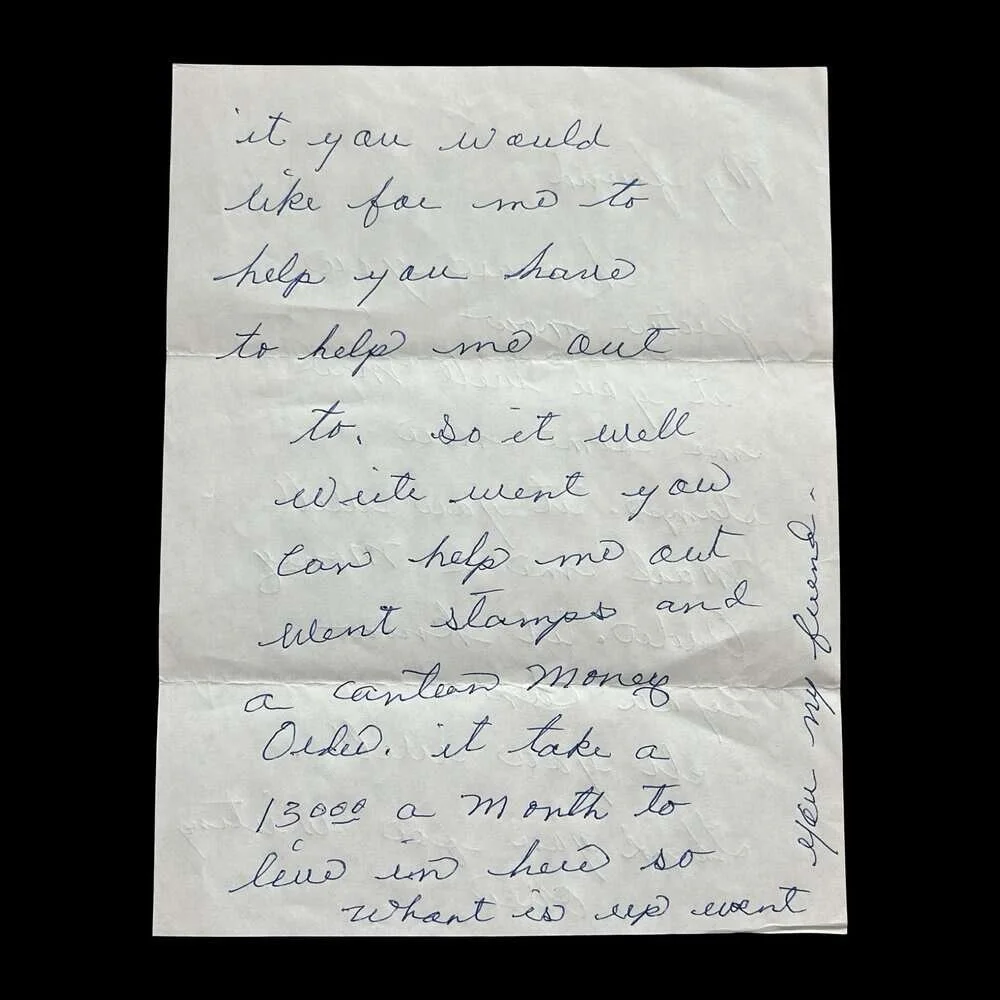 it you would
like for me to
help you have
to help me out
to. So it well
write went you
can help me out
went stamps and
a canteen Money
Order. it take a
130 00 a Month to
live in here so
whant is up went
you my friend.